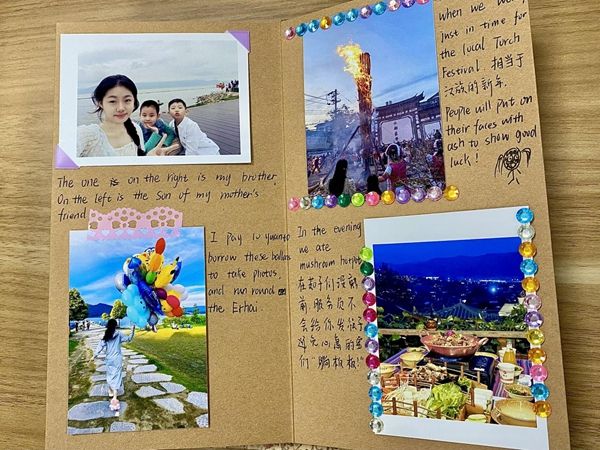 The one is on the right is my brother.
On the left is the Son of my mother's
friend
I pay 10 yuan to
borrow these ballons
to take photos,
and run round
the Erhai.
when we
Just in time for
the local Torch
Festival. 相当于
汉族的新年.
People will put on
their faces with
ash to show good
luck!
In the evening
we ate
mushroom hotpot
在菇子们没熟
前,服务员不
会给你发筷子
心急的宝
们“躺板板!”